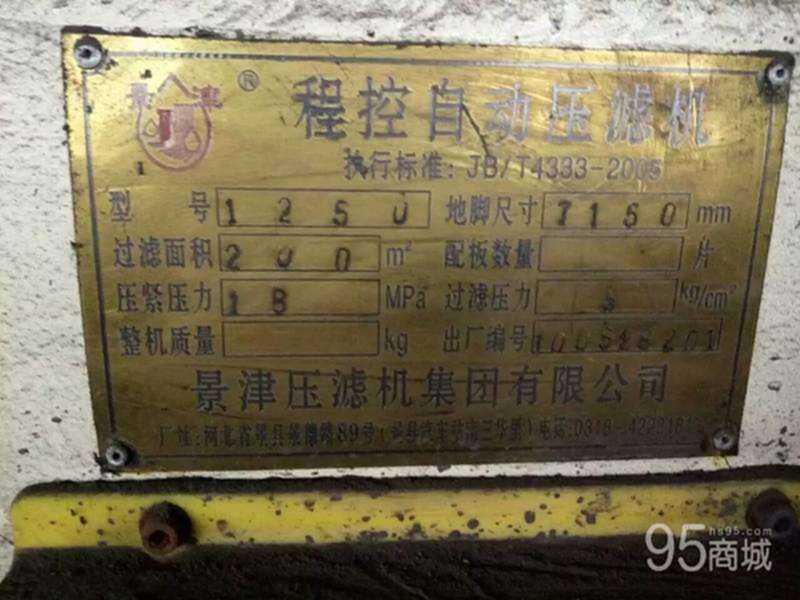 景津 ® 程控自动压滤机
执行标准：JB/T4333-2005
型号 1250 地脚尺寸 7150 mm
过滤面积 200 m² 配板数量 片
压紧压力 18 MPa 过滤压力 kg/cm²
整机质量 kg 出厂编号
景津压滤机集团有限公司
厂址：河北省景县景德路89号 电话:0318-
95商城
hs95.com